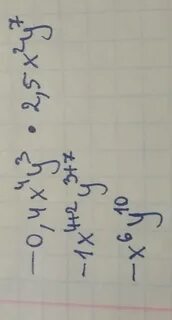 −0,4x⁴y³ · 2,5x²y⁷
−1x⁴⁺²y³⁺⁷
−x⁶y¹⁰